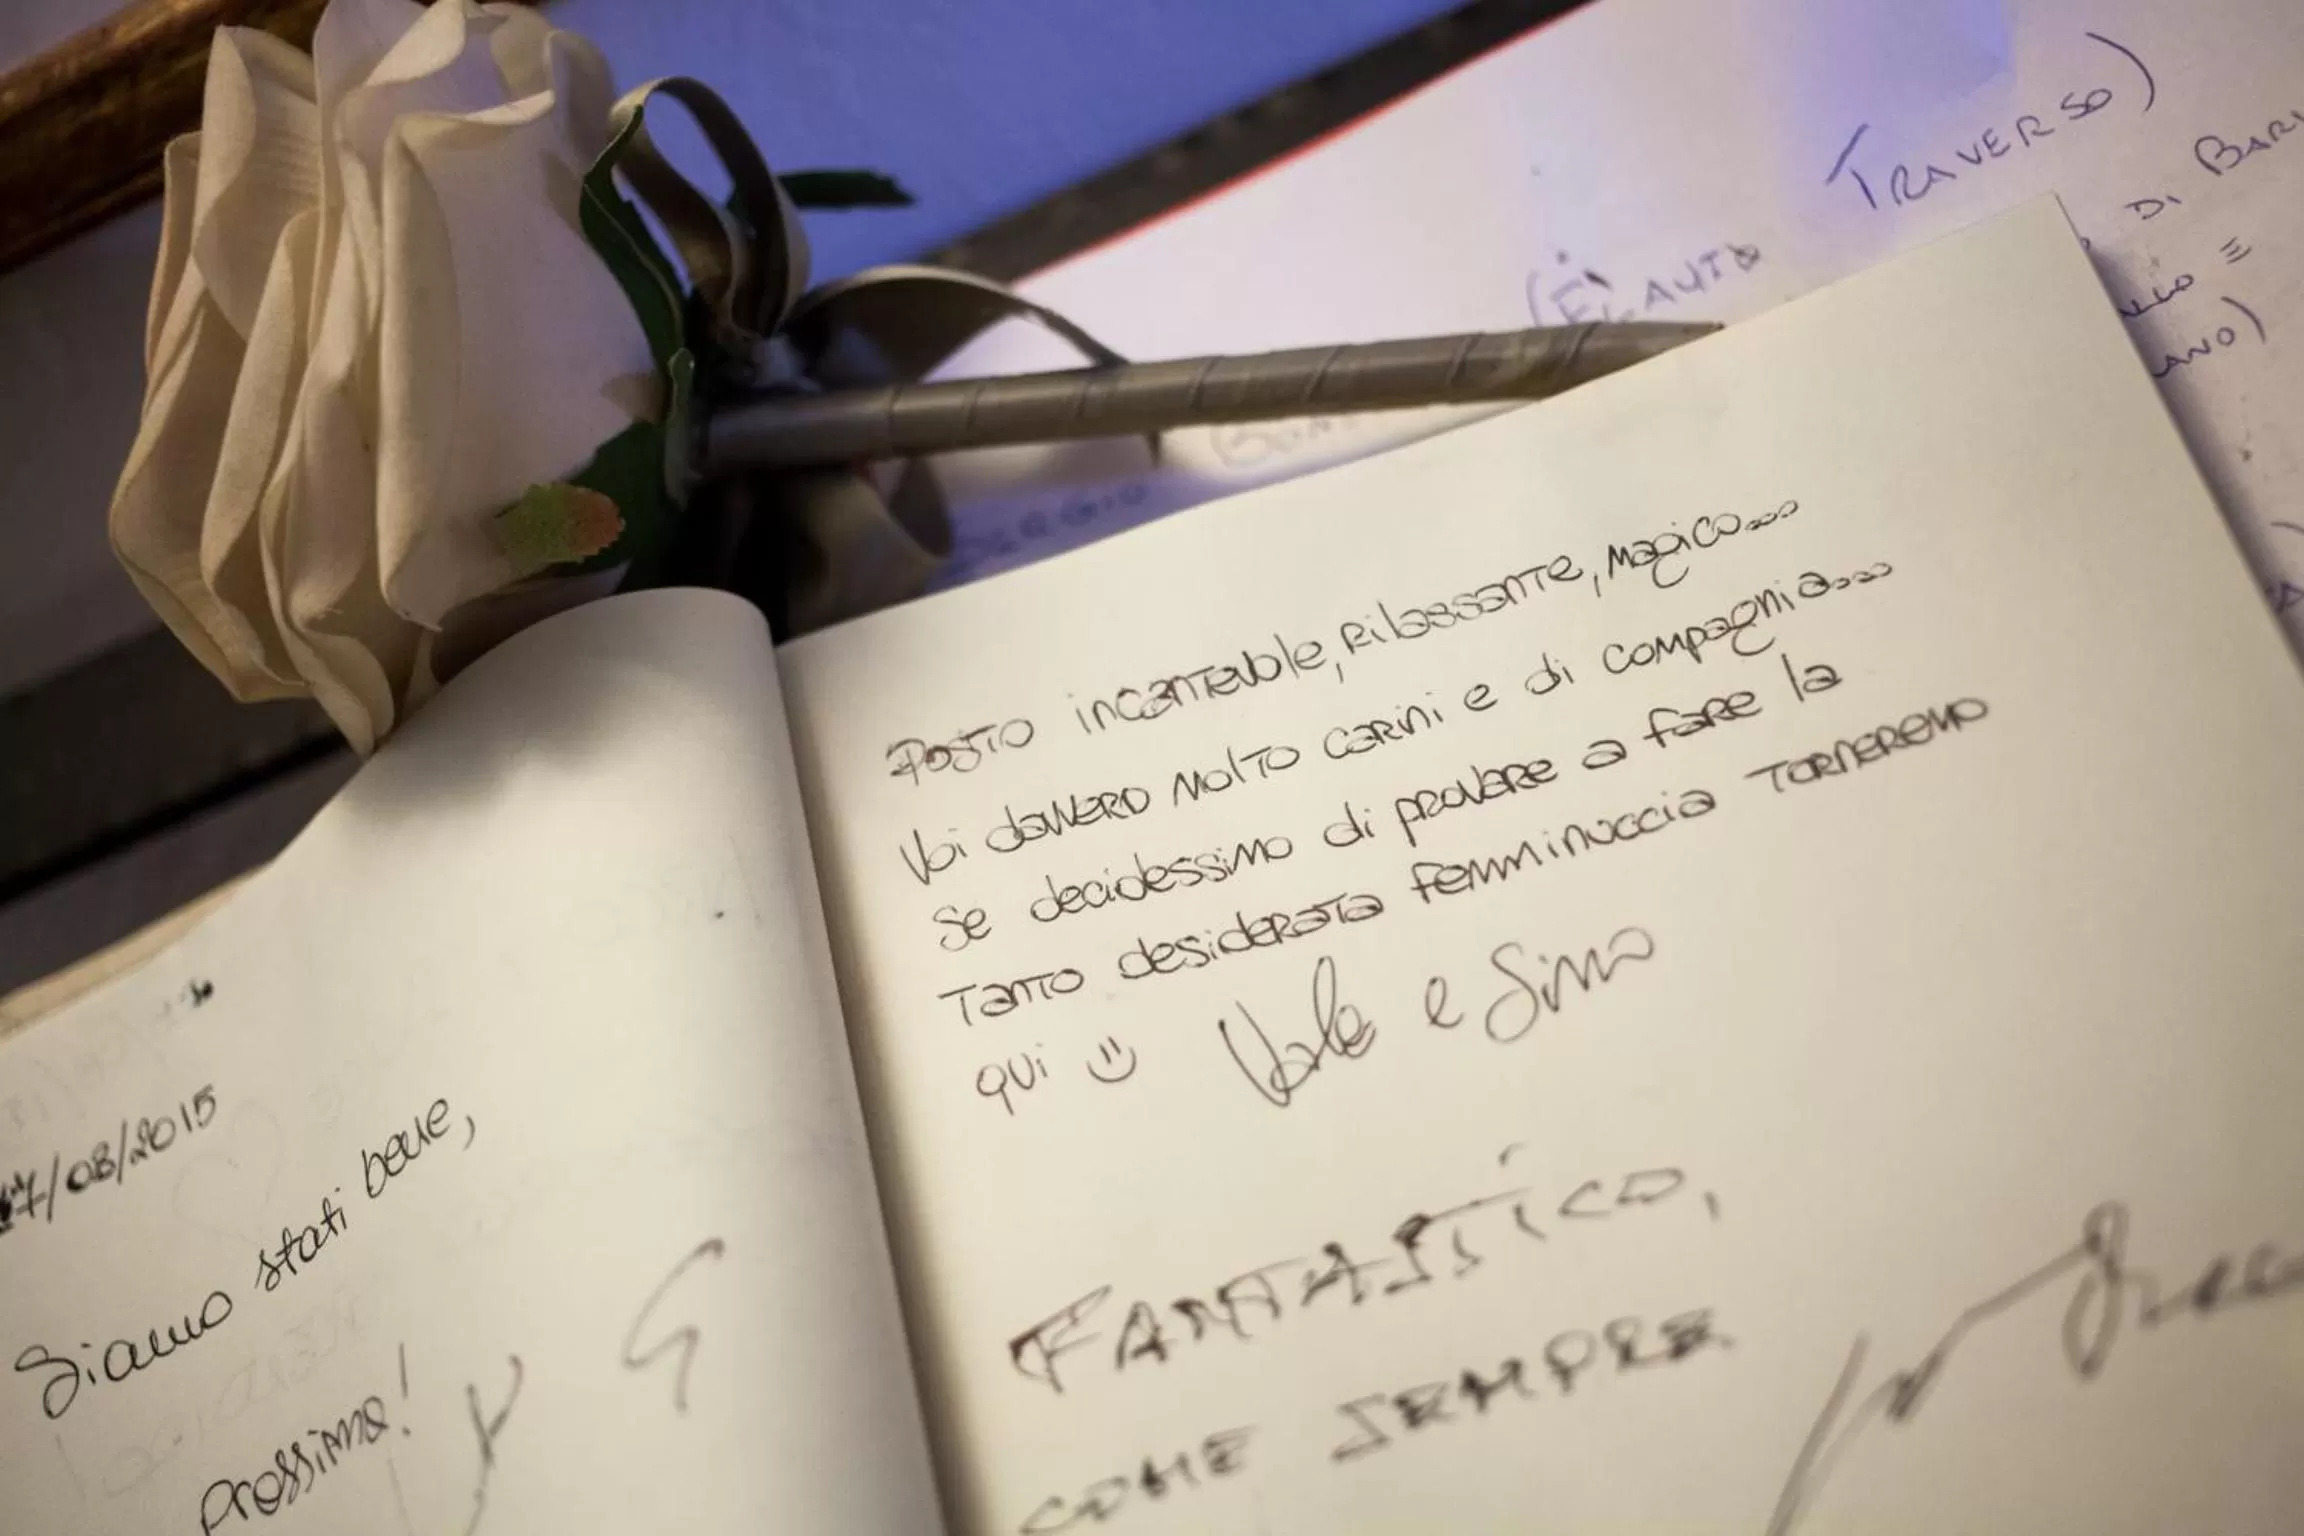 TRAVERSO)
DI BARI
(FLAUTO
ANO)
SERGIO
17/08/2015
Siamo stati bene,
prossima!
Posto incantevole, rilassante, magico...
Voi davvero molto carini e di compagnia...
Se decidessimo di provare a fare la
tanto desiderata femminuccia torneremo
qui Vale e Simo
FANTASTICO,
COME SEMPRE